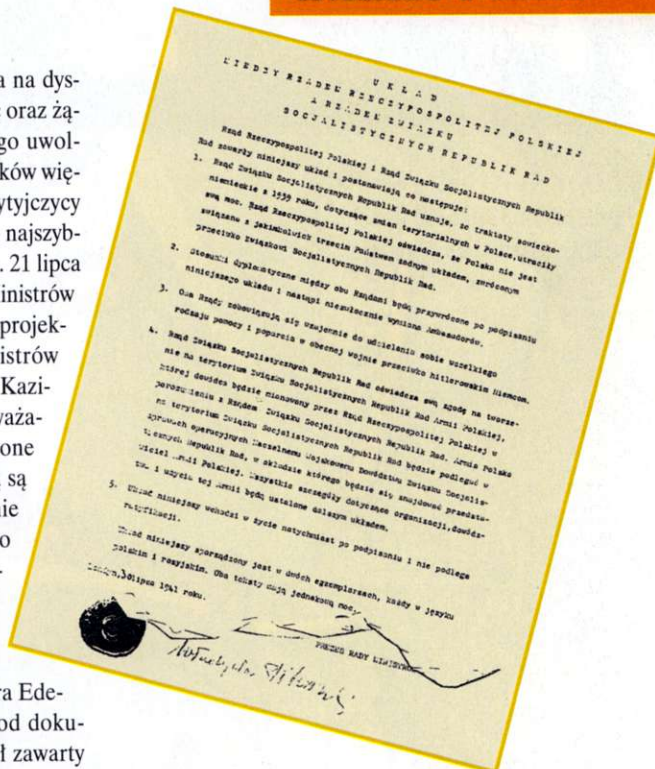 a na dys-
oraz żą-
go uwol-
ków wię-
ytyjczycy
najszyb-
. 21 lipca
inistrów
projek-
istrów
Kazi-
ważа-
one
są
nie
o
-
ra Ede-
od doku-
ł zawarty
U K Ł A D
MIĘDZY RZĄDEM RZECZYPOSPOLITEJ POLSKIEJ
A RZĄDEM ZWIĄZKU
SOCJALISTYCZNYCH REPUBLIK RAD
Rząd Rzeczypospolitej Polskiej i Rząd Związku Socjalistycznych Republik
Rad zawarły niniejszy układ i postanawiają co następuje:
1. Rząd Związku Socjalistycznych Republik Rad uznaje, że traktaty sowiecko-
niemieckie z 1939 roku, dotyczące zmian terytorialnych w Polsce, utraciły
swą moc. Rząd Rzeczypospolitej Polskiej oświadcza, że Polska nie jest
związana z jakimkolwiek trzecim Państwem żadnym układem, zwróconym
przeciwko Związkowi Socjalistycznych Republik Rad.
2. Stosunki dyplomatyczne między obu Rządami będą przywrócone po podpisaniu
niniejszego układu i nastąpi niezwłocznie wymiana Ambasadorów.
3. Oba Rządy zobowiązują się wzajemnie do udzielania sobie wszelkiego
rodzaju pomocy i poparcia w obecnej wojnie przeciwko hitlerowskim Niemcom.
4. Rząd Związku Socjalistycznych Republik Rad oświadcza swą zgodę na tworze-
nie na terytorium Związku Socjalistycznych Republik Rad Armii Polskiej,
której dowódca będzie mianowany przez Rząd Rzeczypospolitej Polskiej w
porozumieniu z Rządem Związku Socjalistycznych Republik Rad. Armia Polska
na terytorium Związku Socjalistycznych Republik Rad będzie podlegać w
sprawach operacyjnych Naczelnemu Wojskowemu Dowództwu Związku Socjalis-
tycznych Republik Rad, w składzie którego będzie się znajdować przedsta-
wiciel Armii Polskiej. Wszystkie szczegóły dotyczące organizacji, dowódz-
twa i użycia tej Armii będą ustalone dalszym układem.
5. Układ niniejszy wchodzi w życie natychmiast po podpisaniu i nie podlega
ratyfikacji.
Układ niniejszy sporządzony jest w dwóch egzemplarzach, każdy w języku
polskim i rosyjskim. Oba teksty mają jednakową moc.
Londyn, 30 lipca 1941 roku.
PREZES RADY MINISTRÓW